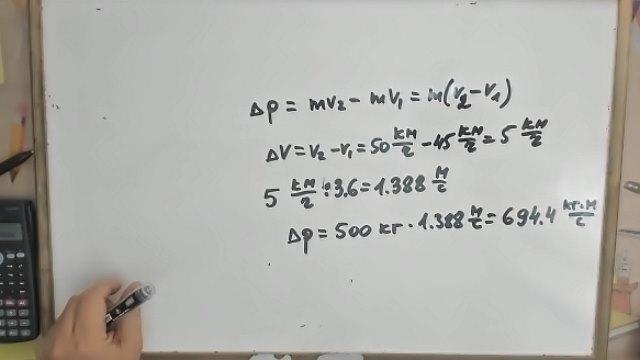 Δp = mv₂ - mv₁ = m(v₂ - v₁)
ΔV = v₂ - v₁ = 50 км/ч - 45 км/ч = 5 км/ч
5 км/ч : 3.6 = 1.388 м/с
Δp = 500 кг · 1.388 м/с = 694.4 кг·м/с